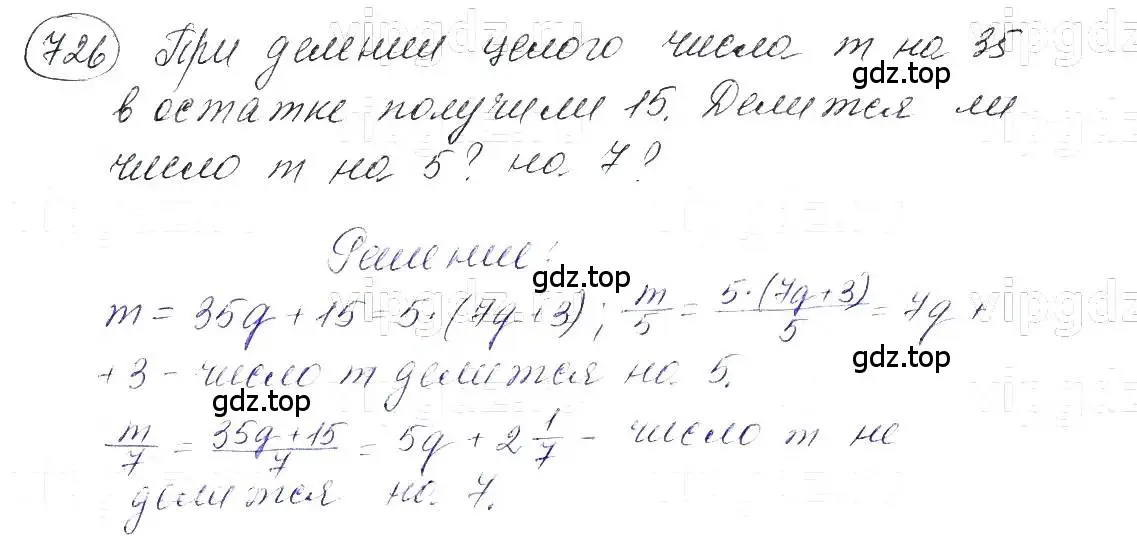 726 При делении целого числа m на 35
в остатке получили 15. Делится ли
число m на 5? на 7?
Решение:
m = 35q + 15 = 5·(7q+3); m/5 = 5·(7q+3)/5 = 7q +
+3 - число m делится на 5.
m/7 = 35q+15/7 = 5q + 2 1/7 - число m не
делится на 7.
gdz.top
gdz.top
gdz.top
gdz.top